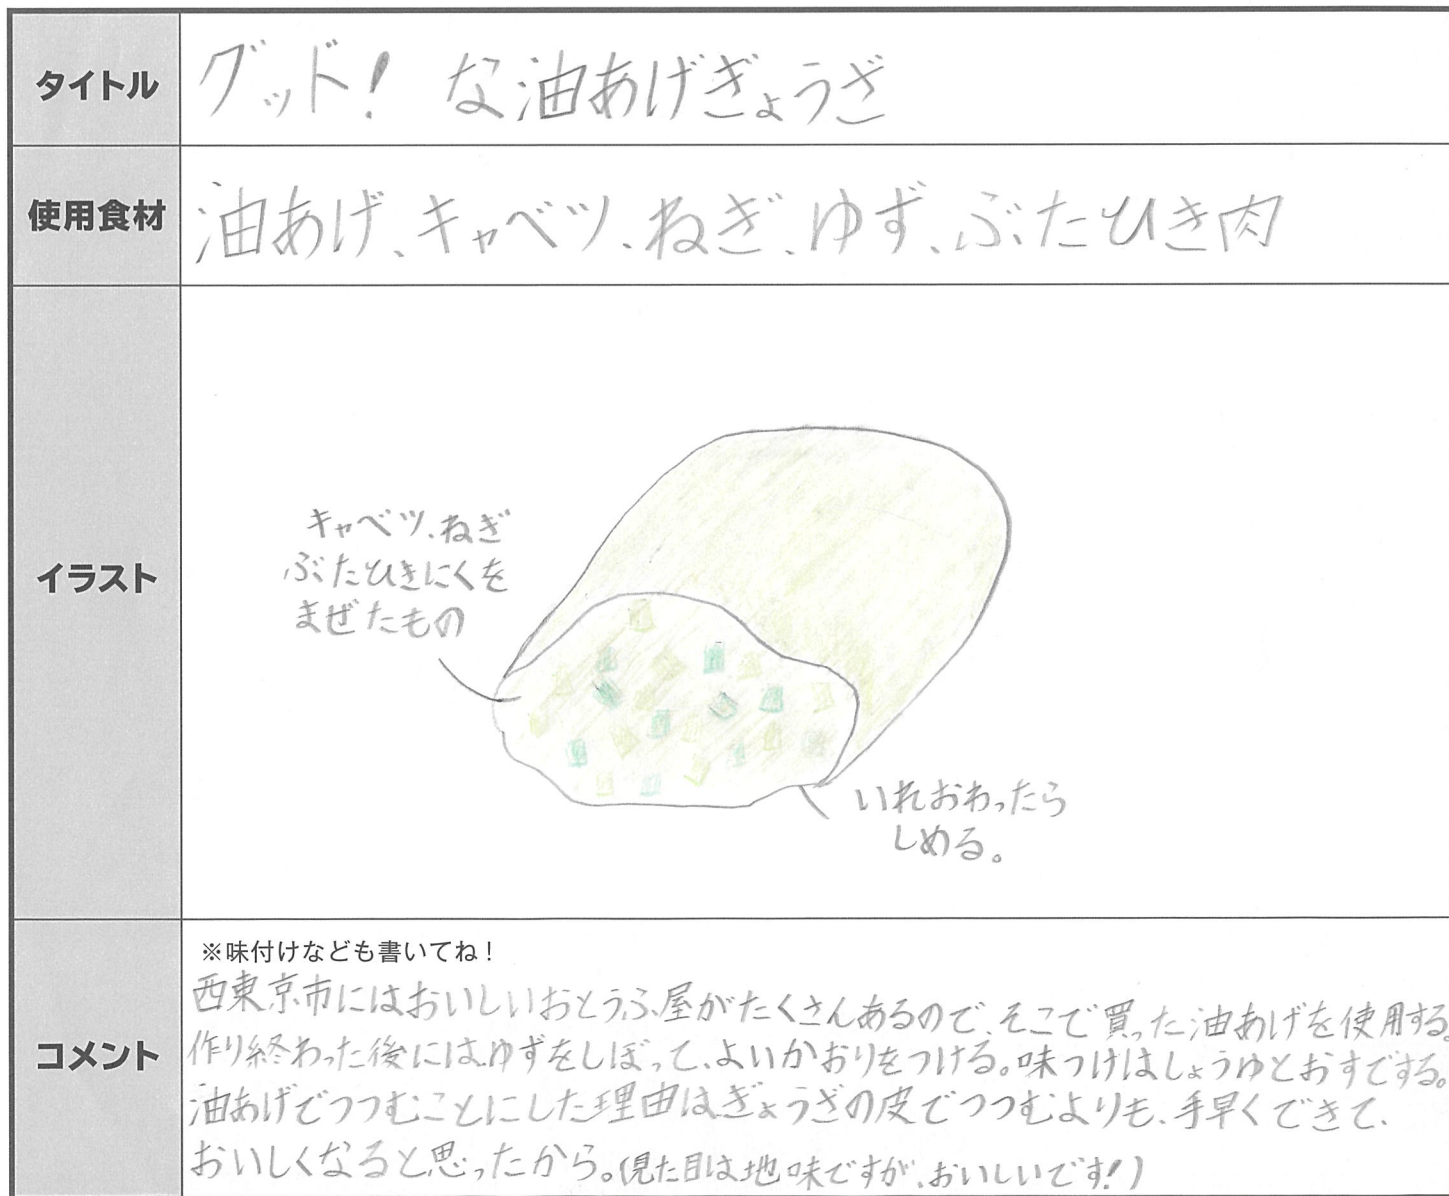 タイトル
グッド! な油あげぎょうざ
使用食材
油あげ、キャベツ、ねぎ、ゆず、ぶたひき肉
イラスト
キャベツ、ねぎ
ぶたひきにくを
まぜたもの
いれおわったら
しめる。
コメント
※味付けなども書いてね!
西東京市にはおいしいおとうふ屋がたくさんあるので、そこで買った油あげを使用する。
作り終わった後には、ゆずをしぼって、よいかおりをつける。味つけはしょうゆとおすでする。
油あげでつつむことにした理由は、ぎょうざの皮でつつむよりも、手早くできて、
おいしくなると思ったから。(見た目は地味ですが、おいしいです!)